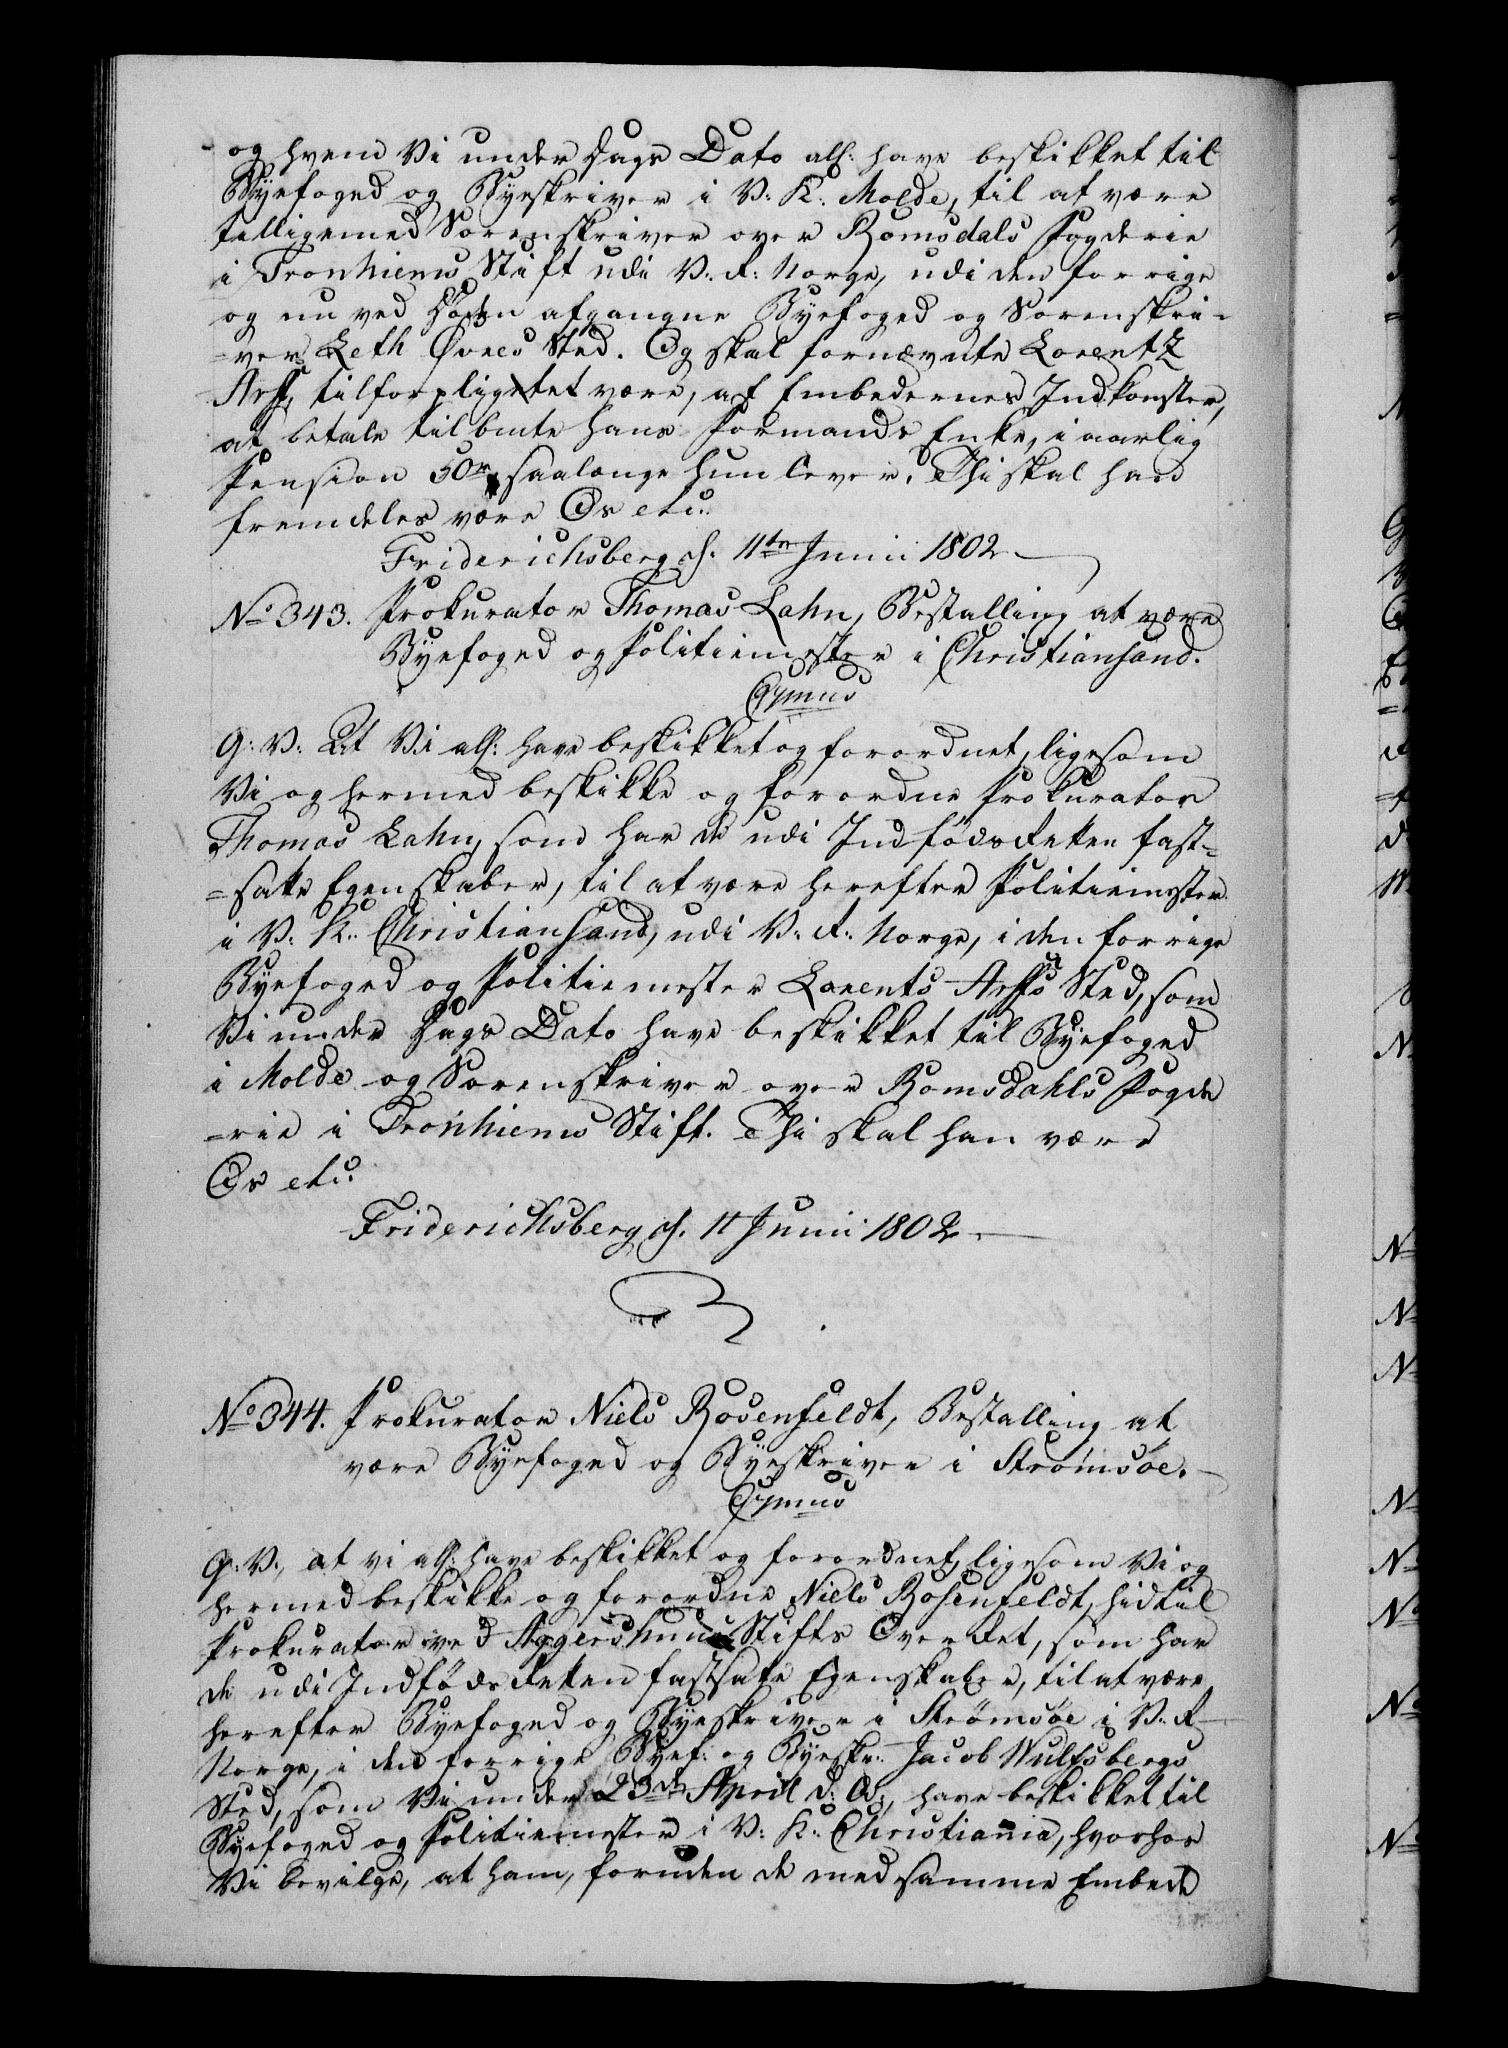 og hvem Vi under Dags Dato all: have beskikket til
Byefoged og Byeskriver i V: K: Molde, til at være
tilligemed Sorenskriver over Romsdals Fogderie
i Tronhiems Stift udi V: R: Norge, udi den forrige
og nu ved Døden afgangne Byefoged og Sorenskri-
=ver Leth Øvres Sted. Og skal fornævnte Lorentz
Arff, tilforpligtet være, af Embedernes Indkomster,
at betale til bmte hans Formands Enke, i aarlig
Pension 50 rd saalænge hun lever. Thi skal han
fremdeles være Os etc:
Friderichsberg d. 11te Junii 1802
No 343. Prokurator Thomas Lahn, Bestalling at være
Byefoged og Politiemester i Christiansand.
C7mus
G: V: At Vi all: have beskikket og forordnet, ligesom
Vi og hermed beskikke og forordne Prokurator
Thomas Lahn, som har de udi Indfødsretten fast-
=satte Egenskaber, til at være herefter Politiemester
i V: K: Christiansand, udi V: R: Norge, i den forrige
Byefoged og Politiemester Lorents Arffs Sted, som
Vi under Dags Dato have beskikket til Byefoged
i Molde og Sorenskriver over Romsdahls Fogde
=rie i Tronhiems Stift. Thi skal han være
Os etc:
Friderichsberg d. 11 Junii 1802
No 344. Prokurator Niels Rosenfeldt, Bestalling at
være Byefoged og Byeskriver i Strømsøe.
C7mus
G: V:, at vi all: have beskikket og forordnet, ligesom Vi og
hermed beskikke og forordne Niels Rosenfeldt, hidtil
Prokurator ved Aggershuus Stifts Overret, som har
de udi Indfødsretten fastsatte Egenskaber, til at være
herefter Byefoged og Byeskriver i Strømsøe i V: R
Norge, i den forrige Byef: og Byeskr: Jacob Wulfsbergs
Sted, som Vi under 23de April d: A:, have beskikket til
Byefoged og Politiemester i V: K: Christiania, hvorhos
Vi bevilge, at ham, foruden de med samme Embede